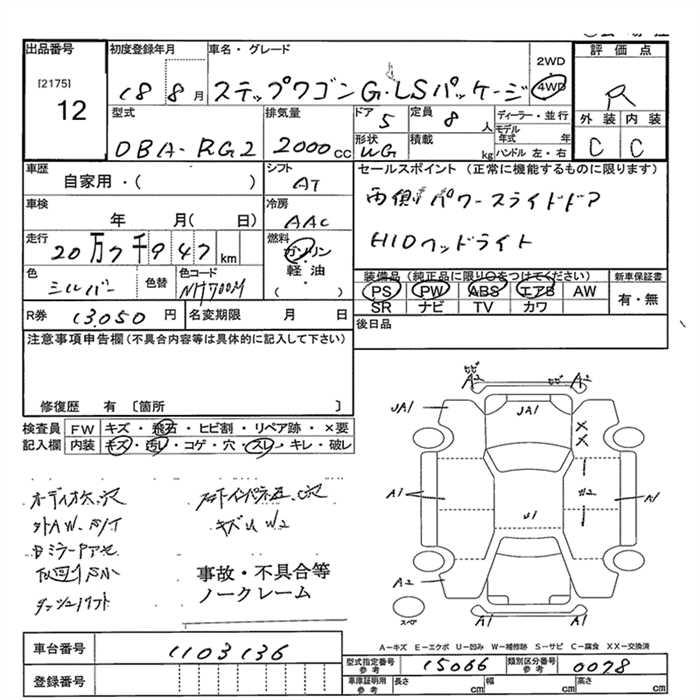 出品番号 初度登録年月 車名・グレード 2WD 評価点
[2175] 18 8月 ステップワゴン G・LSパッケージ 4WD R
12
型式 排気量 ドア 定員 ディーラー・並行 外装 内装
DBA-RG2 2000CC 5 8人 モデル年式 年 C C
形状 積載 ハンドル 左・右
WG kg
車歴 シフト セールスポイント(正常に機能するものに限ります)
自家用・( ) AT 両側パワースライドドア
車検 冷房
年 月( 日) AAC HIDヘッドライト
走行 燃料
20万7千947km ガソリン
軽油
( ・ )
色 色替 色コード 装備品(純正品に限り○をつけてください) 新車保証書
シルバー NH700M PS PW ABS エアB AW 有・無
SR ナビ TV カワ
R券 13,050円 名変期限 月 日 後日品
注意事項申告欄(不具合内容等は具体的に記入して下さい)
修復歴 有 〔箇所 〕
検査員 FW キズ・飛石・ヒビ割・リペア跡・×要
記入欄 内装 キズ・汚レ・コゲ・穴・スレ・キレ・破レ
ヒビ ヒビ
A2 A2
UA1 UA1
X
X
A1 W2 A1
U1
A2
A1 A1
スペア
キズU W2
事故・不具合等
ノークレーム
A-キズ E-エクボ U-凹み W-補修跡 S-サビ C-腐食 XX-交換済
車台番号 1103136
型式指定番号 参考 15066 類別区分番号 参考 0078
登録番号
車庫証明用 参考 長さ cm 幅 cm 高さ cm